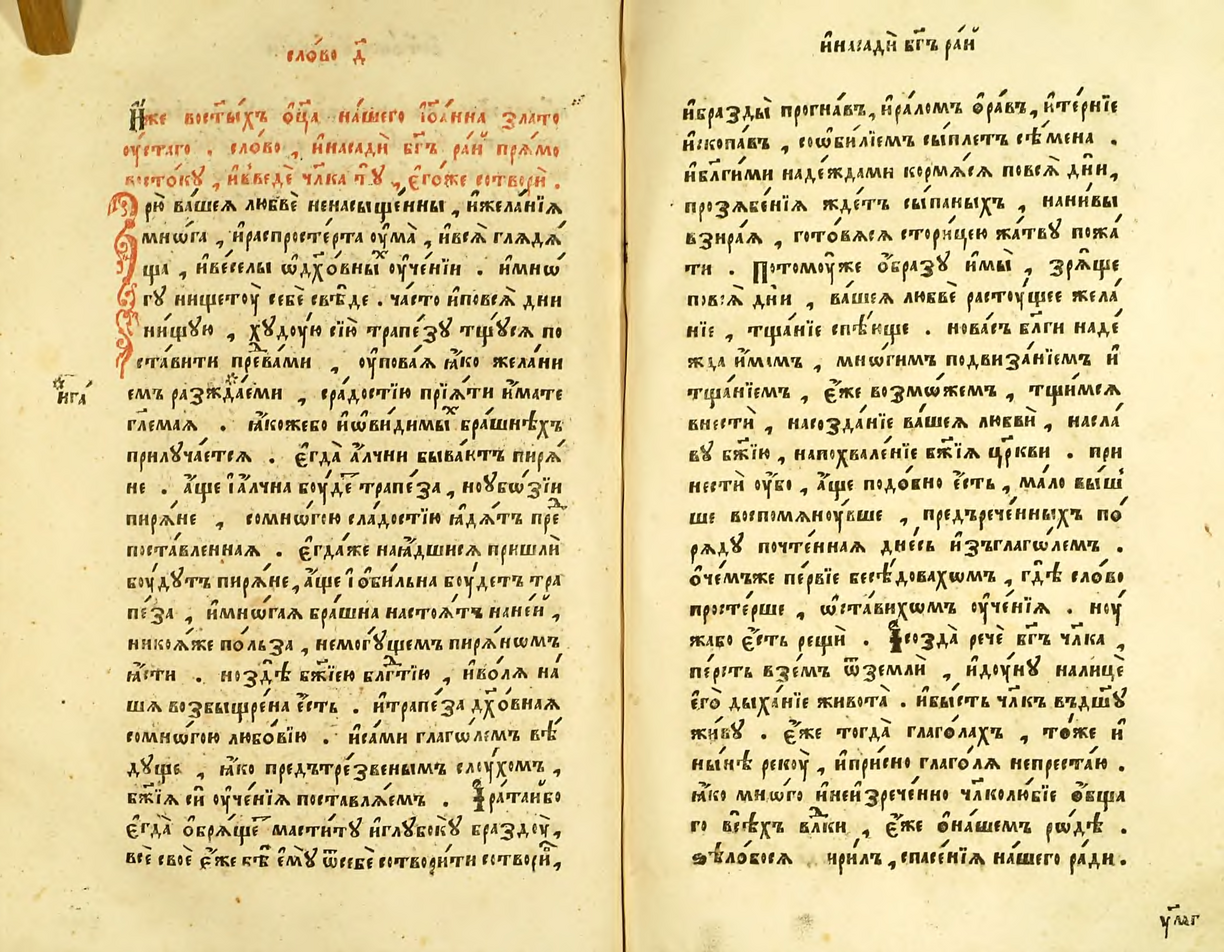 сло́во д҃
И҆́же во ст҃ы́хъ ѻ҆ц҃а̀ на́шего і҆ѡа́нна злато
оу҆́стаго . сло́во , и҆насадѝ бг҃ъ ра́й прѧ́мо
востокꙋ̀ , и҆введѐ чл҃ка тꙋ̀ , є҆го́же сотворѝ .
Зрю̀ ва́шеѧ любвѐ ненасыще́нны , и҆жела́нїѧ
мнѡ́га , и҆распросте́рта оу҆ма̀ , и҆всѧ̀ глѧ́дѧ
ща , и҆ве́селы ѡ҆дх҃о́вны х оу҆че́нїи . и҆мнѡ́
гꙋ нищетоу̀ себѐ свѣ́де . ча́сто и҆повсѧ̀ дни
ни́щꙋю , хꙋдо́ую сїю̀ трапе́зꙋ тщꙋ́сѧ по
ста́вити пре́вами , оу҆пова́ѧ ꙗ҆́ко жела́ни
емъ разжда́еми , сра́достїю прїѧ́ти и҆́мате
гл҃емаѧ . ꙗ҆́кожебо и҆ѡви́димы х бра́шнѣхъ
прилꙋча́етсѧ . є҆гда̀ а҆́лчни быва́ютъ пирѧ́
не . а҆́ще і҆ а҆́лчна боу́де трапе́за , ноубо́зїи
пирѧ́не , сомно́гою сла́достїю ꙗ҆дѧ́тъ пре
поста́вленнаѧ . є҆гда́же наꙗ́дшиисѧ пришлѝ
боу́дутъ пирѧ́не , а҆́ще і҆ ѻ҆би́льна боу́детъ тра
пе́за , и҆мнѡ́гаѧ бра́шна настоѧ́тъ нане́й ,
никоѧ́же по́льза , немогꙋ́щемъ пирѧ́нѡмъ
ꙗ҆́сти . ноздѣ̀ бж҃їею бл҃гтїю , и҆во́лѧ на́
ша возвыщре́на є҆́сть . и҆трапе́за дх҃о́внаѧ
сомно́гою любо́вїю . и҆са́ми глаго́лемъ вѣ́
дꙋще , ꙗ҆́ко предътре́звенымъ слоу́хомъ ,
бж҃їѧ сѝ оу҆че́нїѧ поставлѧ́емъ . І҆рата́ибо
є҆гда̀ ѻ҆брѧ́ще масти́тꙋ и҆глꙋбо́кꙋ браздоу̀ ,
всѐ своѐ є҆́же бѣ̀ є҆мꙋ̀ ѿсебѐ сотвори́ти сотворѝ ,
и҆га̀
и҆насадѝ бг҃ъ ра́й
и҆бразды̀ прогна́въ , и҆ра́ломъ ѻ҆ра́въ , и҆те́рнїе
и҆скопа́въ , сои҆зоби́лїемъ сы́плетъ сѣ́мена .
и҆бл҃ги́ми наде́ждами кормѧ́сѧ повсѧ̀ дни̑ ,
прозѧбе́нїѧ жде́тъ сы́паныхъ , нани́вы
взира́ѧ , гото́вѧсѧ стори́цею жа́твꙋ пожа́
ти . Потомоу́же ѻ҆́бразꙋ и҆мы̀ , зрѧ́ще
повсѧ̀ дни̑ , ва́шеѧ любвѐ растоу́щее жела́
нїе , тща́нїе спѣ́юще . нова́съ бл҃ги наде́
жда и҆́мъмъ , мно́гимъ подвиза́нїемъ и҆
тща́нїемъ , є҆́же возмо́жемъ , тщи́мсѧ
внестѝ , насозда́нїе ва́шеѧ любвѝ , насла́
вꙋ бж҃їю , напохвале́нїе бж҃їѧ цр҃кви . при
нестѝ оу҆́бо , а҆́ще подо́бно є҆́сть , ма́ло вы́ш
ше воспомѧноу́вше , предърече́нныхъ по́
рѧдꙋ почте́ннаѧ дне́сь и҆зъглаго́лемъ .
ѻ҆че́мъже пе́рвїе бесѣ́довахѡмъ , гдѣ̀ сло́во
просте́рше , ѡ҆ста́вихѡмъ оу҆че́нїѧ . ноу́
жабо є҆́сть рещѝ . І҆созда̀ речѐ бг҃ъ чл҃ка ,
пе́рсть взе́мъ ѿземлѝ , и҆доу́нꙋ налицѐ
є҆го̀ дыха́нїе живота̀ . и҆бы́сть чл҃къ въдш҃ꙋ
жи́вꙋ . є҆́же тогда̀ глаго́лахъ , то́же и҆
ны́нѣ рекоу̀ , и҆при́сно глаго́лѧ непреста́ю .
ꙗ҆́ко мно́го и҆неи҆зрече́нно чл҃колю́бїе ѻ҆́бща
го всѣ́хъ вл҃ки , є҆́же ѻ҆на́шемъ ро́дѣ .
ѕѣлобосѧ ирилъ , спасе́нїѧ на́шего ра́ди .